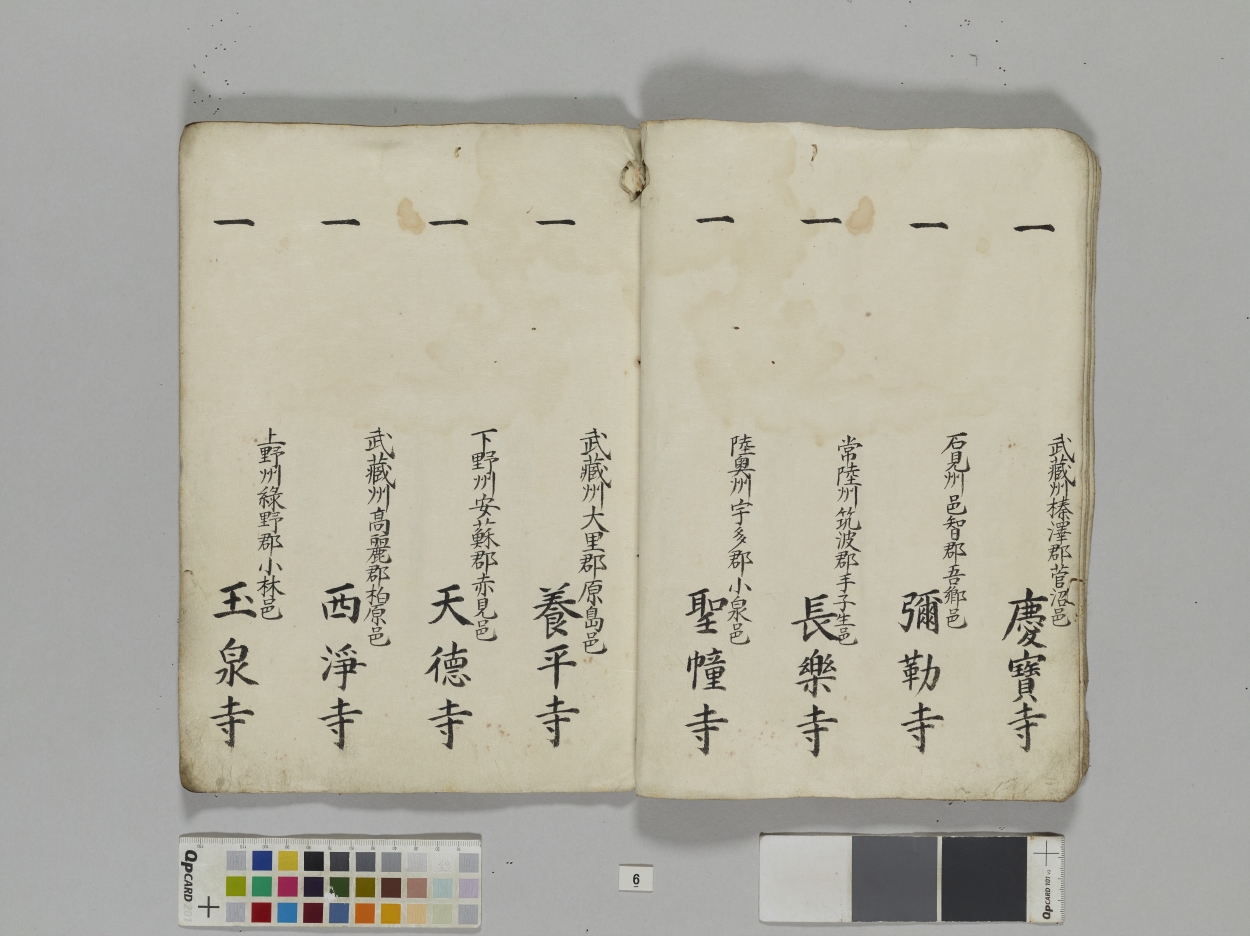 一
武藏州榛澤郡菅沼邑
慶寶寺
一
石見州邑智郡吾鄉邑
彌勒寺
一
常陸州筑波郡手子生邑
長樂寺
一
陸奧州宇多郡小泉邑
聖幢寺
一
武藏州大里郡原島邑
養平寺
一
下野州安蘇郡赤見邑
天德寺
一
武藏州高麗郡柏原邑
西淨寺
一
上野州綠野郡小林邑
玉泉寺
QPCARD 201
6
QPCARD 101